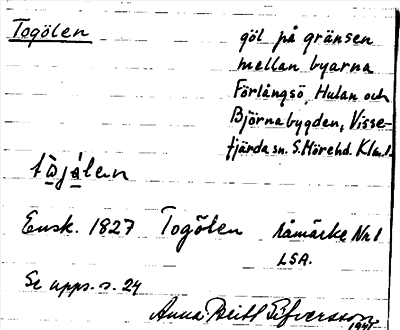 Togölen
göl på gränsen
mellan byarna
Förlångsö, Hulan och
Björnabygden, Visse-
fjärda sn. S. Möre hd. Klm.l.
Ensk. 1827 Togölen råmärke Nr 1
LSA.
Se upps. s. 24
Anna-Britt Sifversson